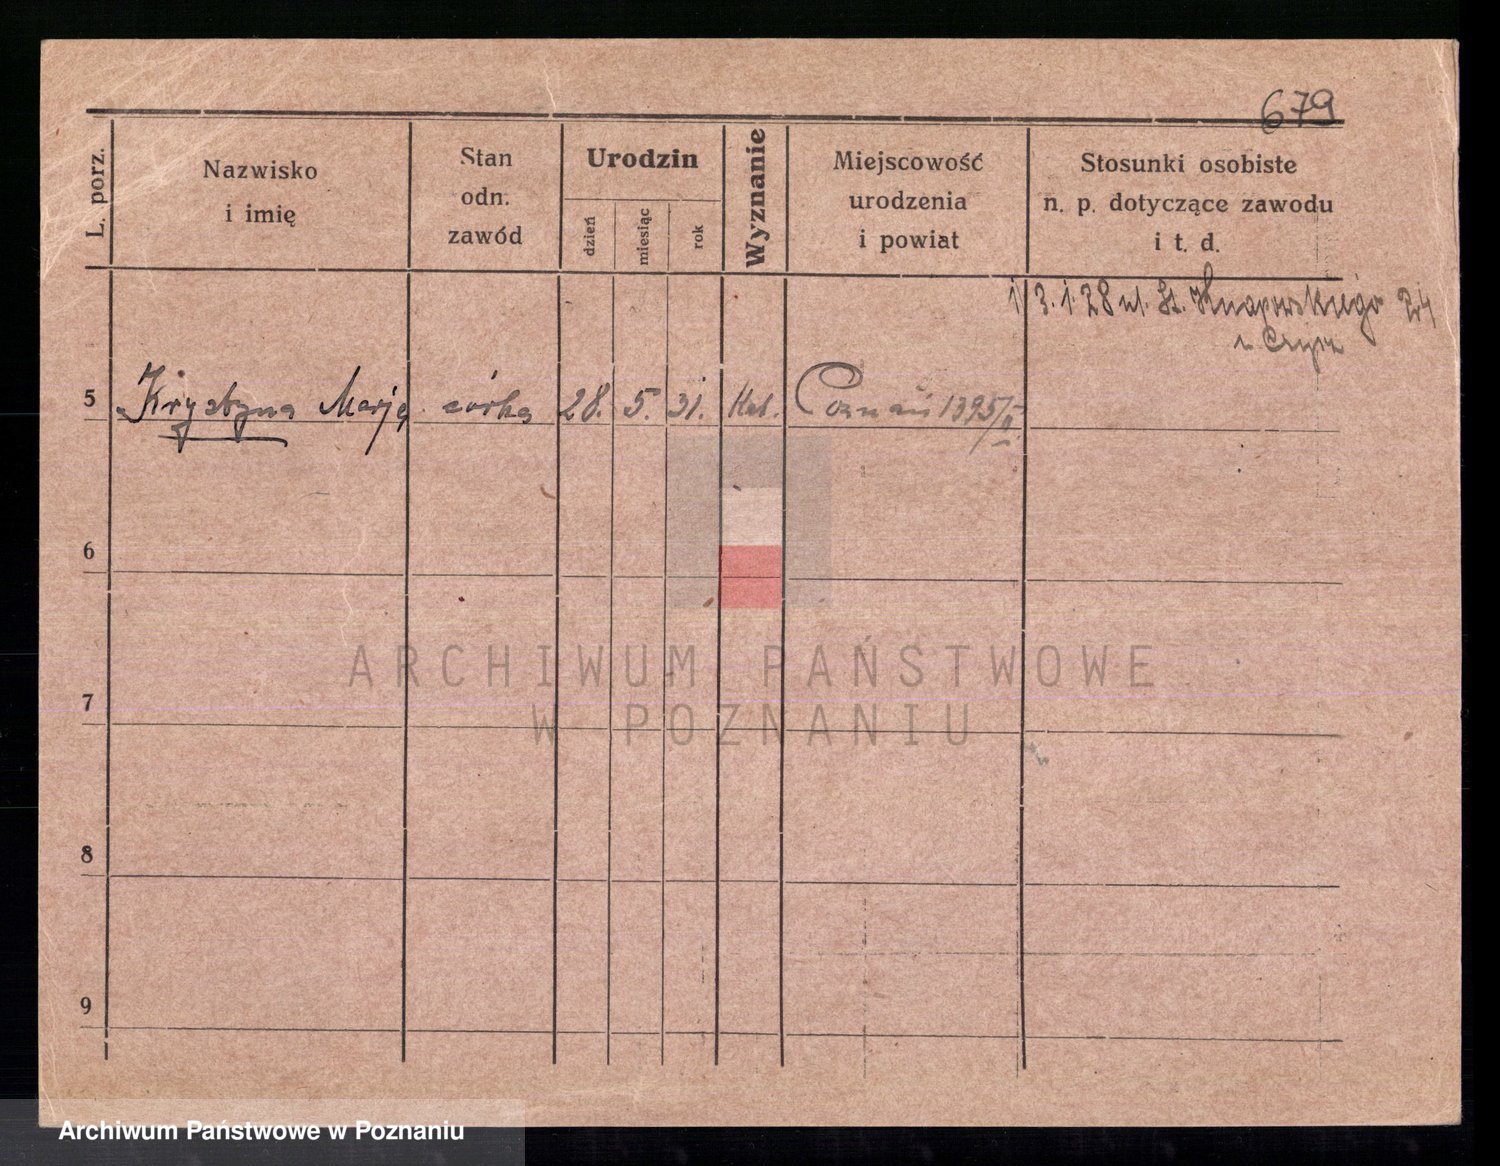 679
L. porz.
Nazwisko
i imię
Stan
odn.
zawód
Urodzin
dzień
miesiąc
rok
Wyznanie
Miejscowość
urodzenia
i powiat
Stosunki osobiste
n. p. dotyczące zawodu
i t. d.
3. 1. 28 ul. Knapowskiego 24
5 Krystyna Marja córka 28. 5. 31. Kat. Poznań 1395/II.
6
7
8
9
ARCHIWUM PAŃSTWOWE
W POZNANIU
Archiwum Państwowe w Poznaniu